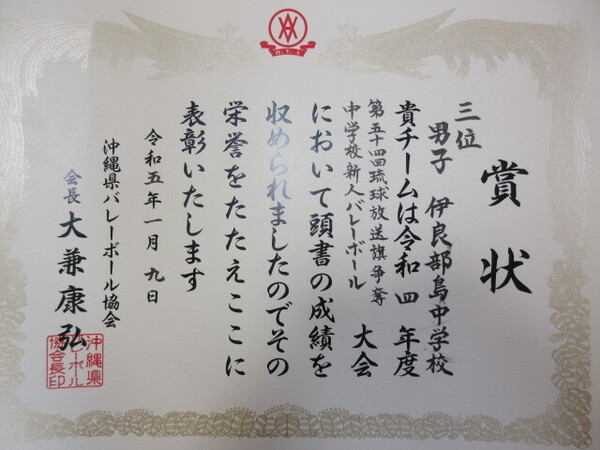 賞状
三位
男子 伊良部島中学校
貴チームは令和四年度
第五十四回琉球放送旗争奪
中学校新人バレーボール大会
において頭書の成績を
収められましたのでその
栄誉をたたえここに
表彰いたします
令和五年一月九日
沖縄県バレーボール協会
会長 大兼康弘
沖縄県
バレーボール
協会長印